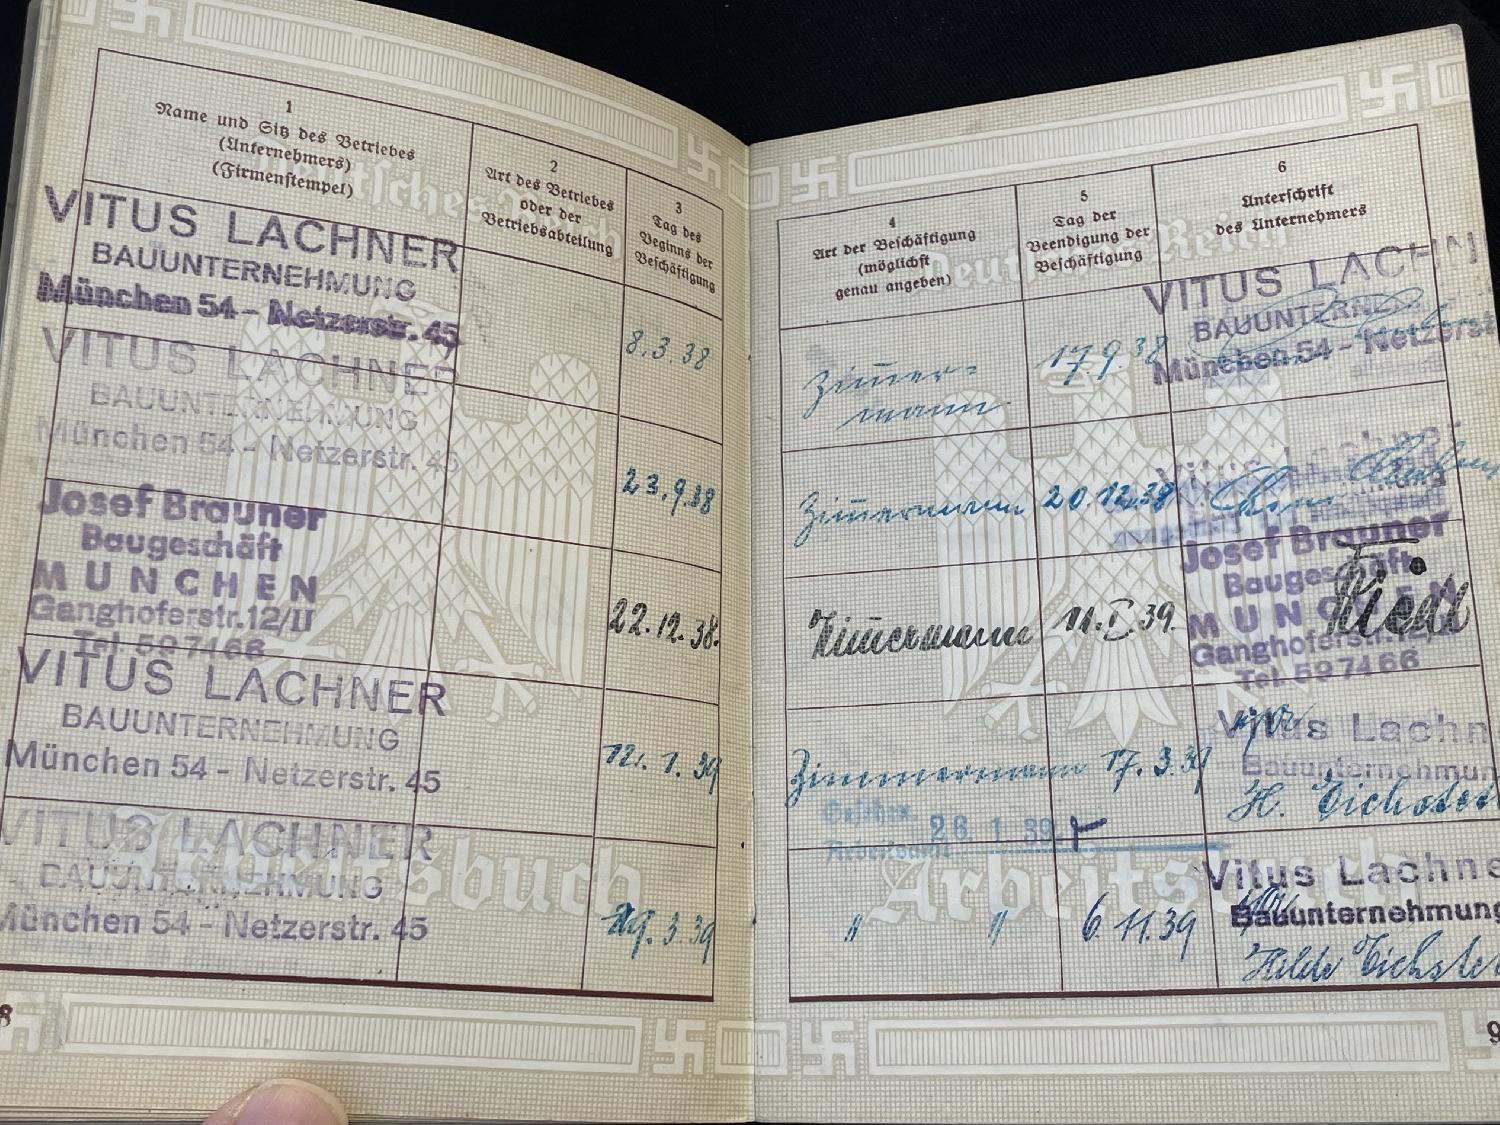 1
Name und Sitz des Betriebes
(Unternehmers)
(Firmenstempel)
2
Art des Betriebes
oder der
Betriebsabteilung
3
Tag des
Beginns der
Beschäftigung
VITUS LACHNER
BAUUNTERNEHMUNG
München 54 - Netzerstr. 45
8.3.38
VITUS LACHNER
BAUUNTERNEHMUNG
München 54 - Netzerstr. 45
23.9.38
Josef Brauner
Baugeschäft
MÜNCHEN
Ganghoferstr.12/II
Tel. 597466
22.12.38.
VITUS LACHNER
BAUUNTERNEHMUNG
München 54 - Netzerstr. 45
12. 1. 39
VITUS LACHNER
BAUUNTERNEHMUNG
München 54 - Netzerstr. 45
29.3.39
Deutsches Reich
Arbeitsbuch
8
4
Art der Beschäftigung
(möglichst
genau angeben)
5
Tag der
Beendigung der
Beschäftigung
6
Unterschrift
des Unternehmers
Zimmer-
mann
17.9.38
VITUS LACHN
BAUUNTERNE
München 54 - Netzerst
Zimmermann
20.12.38
Zimmermann
11.I.39.
Josef Brauner
Baugeschäft
MÜNCHEN
Ganghoferstr.12/II
Tel. 597466
Zimmermann
17.3.39
Vitus Lachn
Bauunternehmun
H. Eichstet
26. 1. 39
Arbeitsamt
" "
6.11.39
Vitus Lachne
Bauunternehmung
Hilde Eichstet
Deutsches Reich
Arbeitsbuch
9